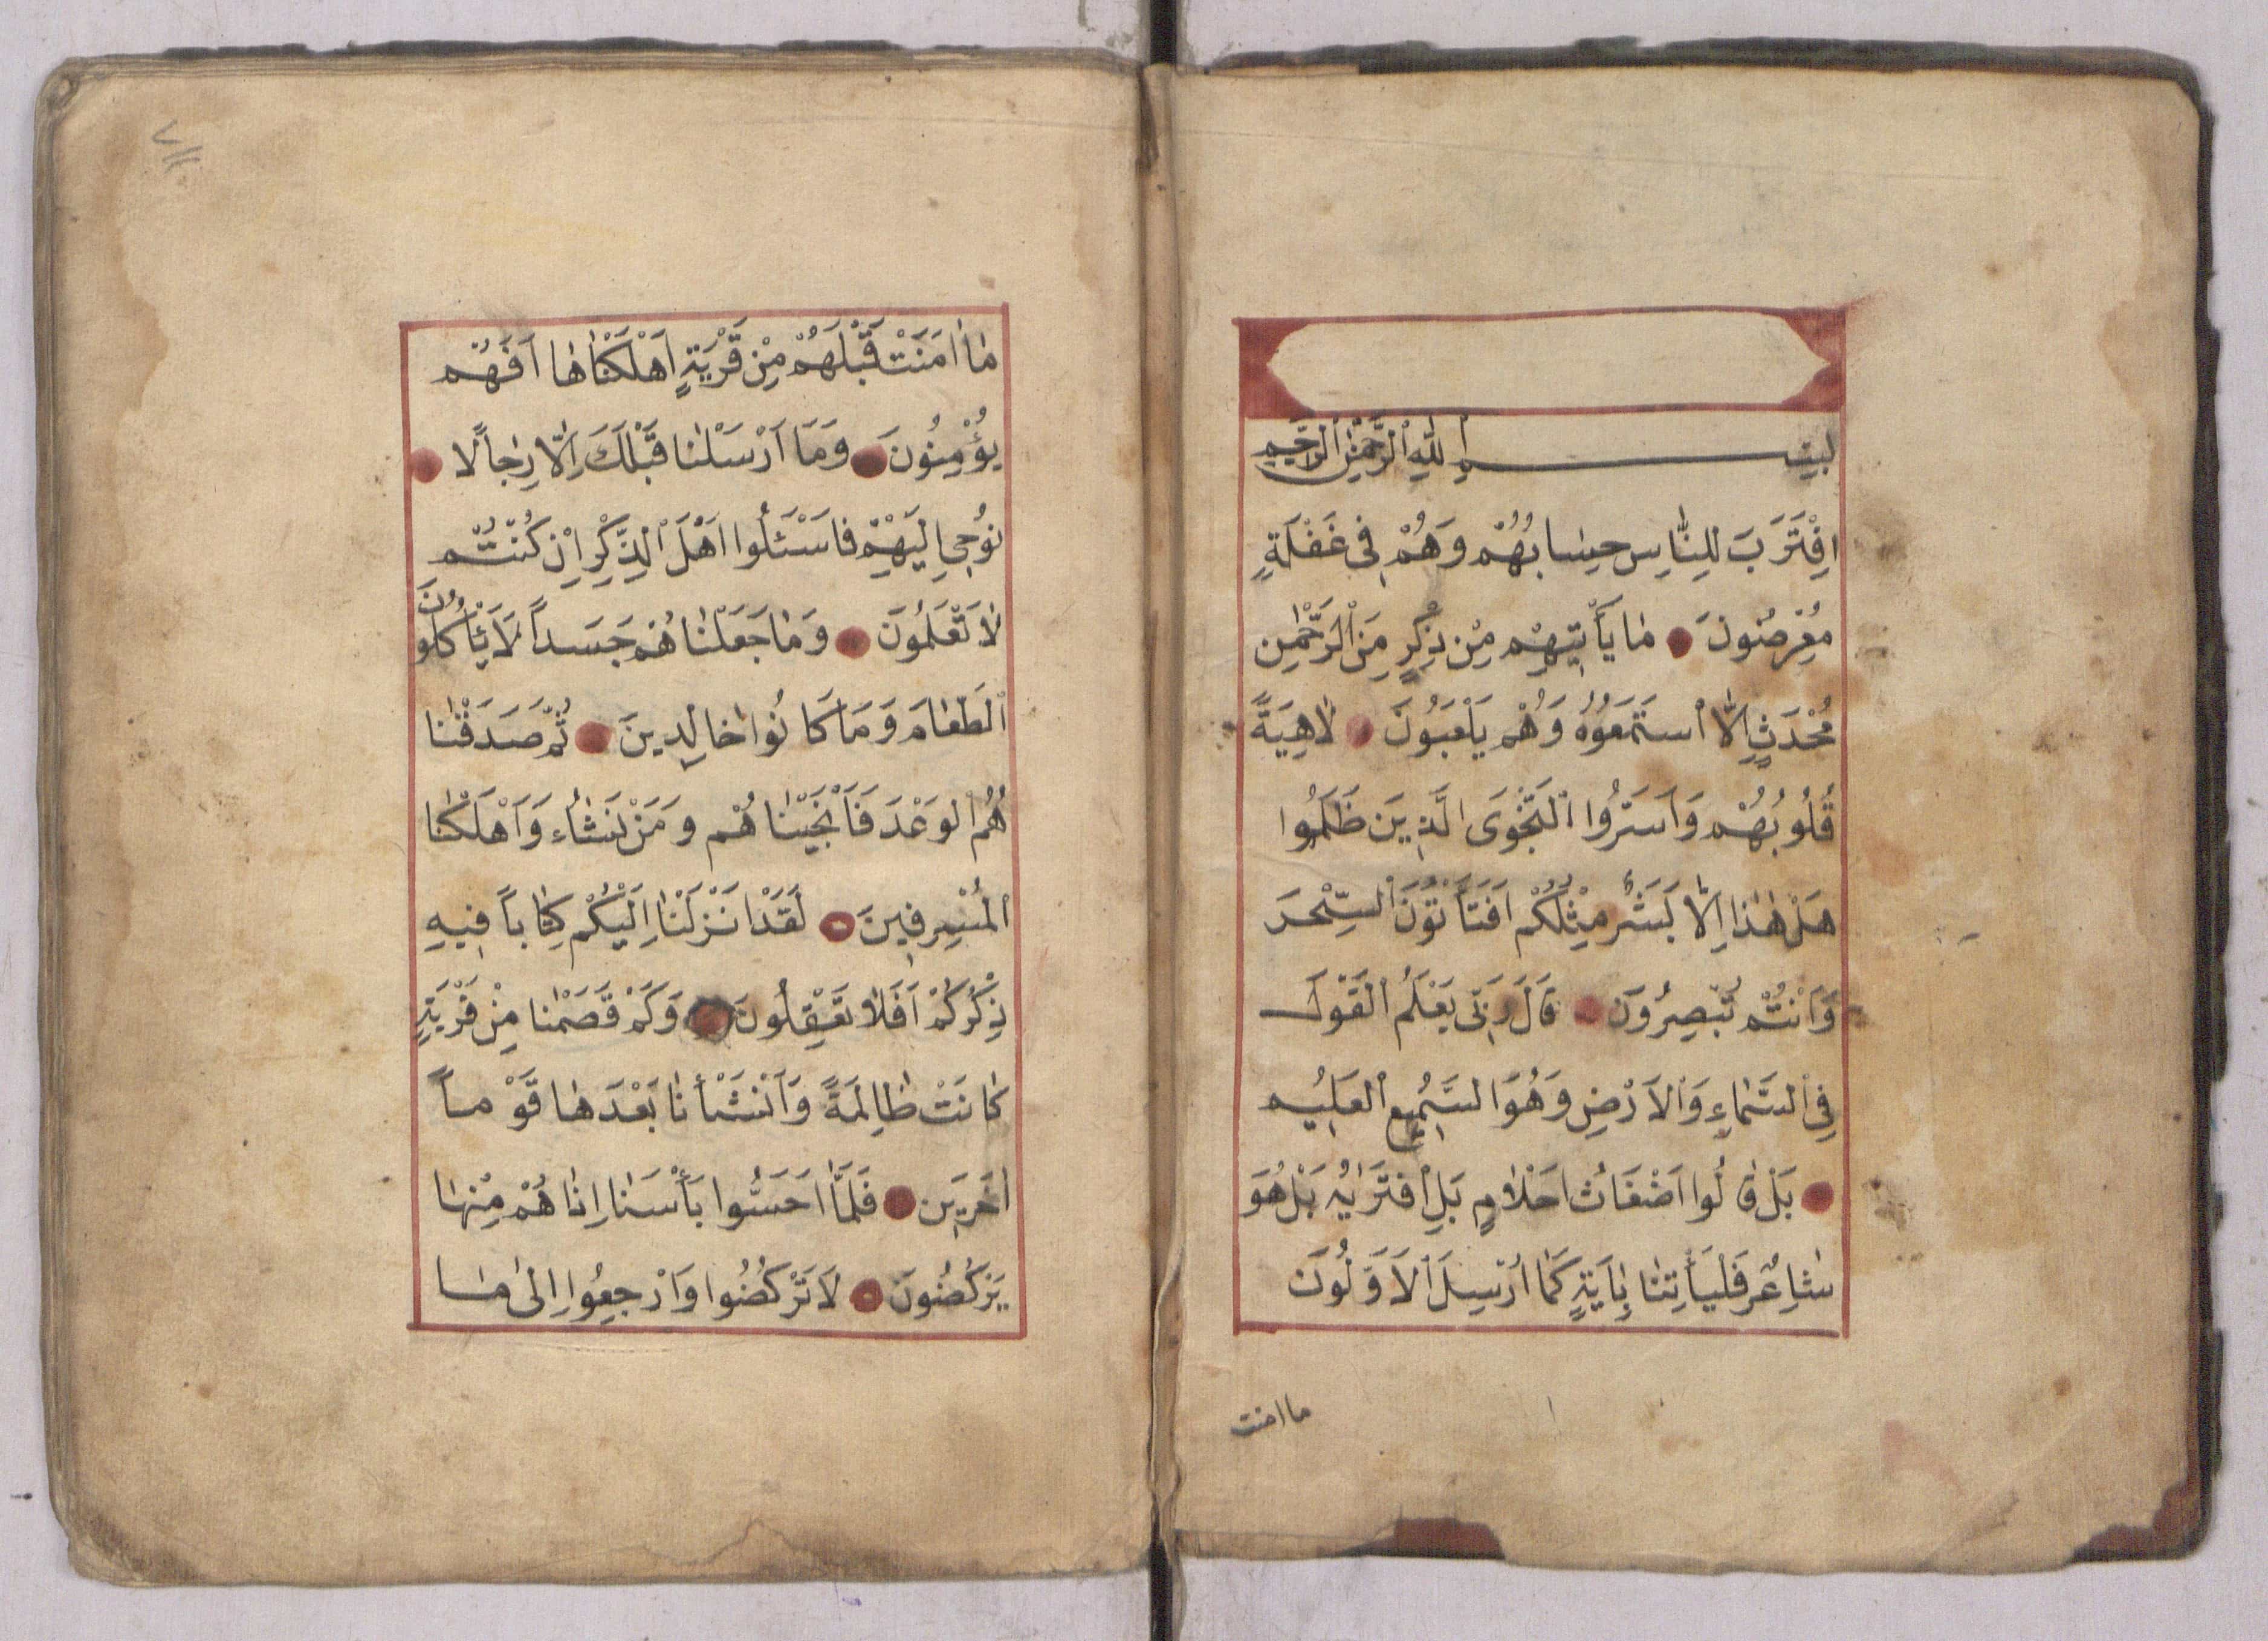 بِسْمِ ٱللّٰهِ ٱلرَّحْمٰنِ ٱلرَّحِيمِ
اِقْتَرَبَ لِلنَّاسِ حِسٰابُهُمْ وَهُمْ فِى غَفْلَةٍ
مُعْرِضُونَ مٰا يَأْتِيهِمْ مِنْ ذِكْرٍ مِنَ ٱلرَّحْمٰنِ
مُحْدَثٍ اِلَّا ٱسْتَمَعُوهُ وَهُمْ يَلْعَبُونَ لٰاهِيَةً
قُلُوبُهُمْ وَاَسَرُّوا ٱلنَّجْوَى الَّذِينَ ظَلَمُوا
هَلْ هٰذٰا اِلَّا بَشَرٌ مِثْلُكُمْ اَفَتَأْتُونَ ٱلسِّحْرَ
وَاَنْتُمْ تُبْصِرُونَ قَالَ رَبِّى يَعْلَمُ ٱلْقَوْلَ
فِى ٱلسَّمٰاءِ وَٱلْاَرْضِ وَهُوَ ٱلسَّمِيعُ ٱلْعَلِيمُ
بَلْ قٰالُوا اَضْغَاثُ اَحْلٰامٍ بَلِ ٱفْتَرٰيهُ بَلْ هُوَ
شٰاعِرٌ فَلْيَأْتِنٰا بِاٰيَةٍ كَمٰا اُرْسِلَ ٱلْاَوَّلُونَ
ما امنت
مٰا اٰمَنَتْ قَبْلَهُمْ مِنْ قَرْيَةٍ اَهْلَكْنٰاهٰا اَفَهُمْ
يُؤْمِنُونَ وَمَا اَرْسَلْنٰا قَبْلَكَ اِلَّا رِجٰالًا
نُوحِى اِلَيْهِمْ فٰاسْئَلُوا اَهْلَ ٱلذِّكْرِ اِنْ كُنْتُمْ
لٰا تَعْلَمُونَ وَمٰا جَعَلْنٰاهُمْ جَسَداً لَا يَأْكُلُونَ
ٱلطَّعٰامَ وَمَا كَانُوا خٰالِدِينَ ثُمَّ صَدَقْنٰا
هُمُ ٱلْوَعْدَ فَاَنْجَيْنٰاهُمْ وَمَنْ نَشٰاءُ وَاَهْلَكْنٰا
ٱلْمُسْرِفِينَ لَقَدْ اَنْزَلْنٰا اِلَيْكُمْ كِتٰاباً فِيهِ
ذِكْرُكُمْ اَفَلٰا تَعْقِلُونَ وَكَمْ قَصَمْنٰا مِنْ قَرْيَةٍ
كٰانَتْ ظٰالِمَةً وَاَنْشَأْنٰا بَعْدَهٰا قَوْماً
اٰخَرِينَ فَلَمَّا اَحَسُّوا بَأْسَنٰا اِذٰا هُمْ مِنْهٰا
يَرْكُضُونَ لَا تَرْكُضُوا وَارْجِعُوا اِلىٰ مٰا